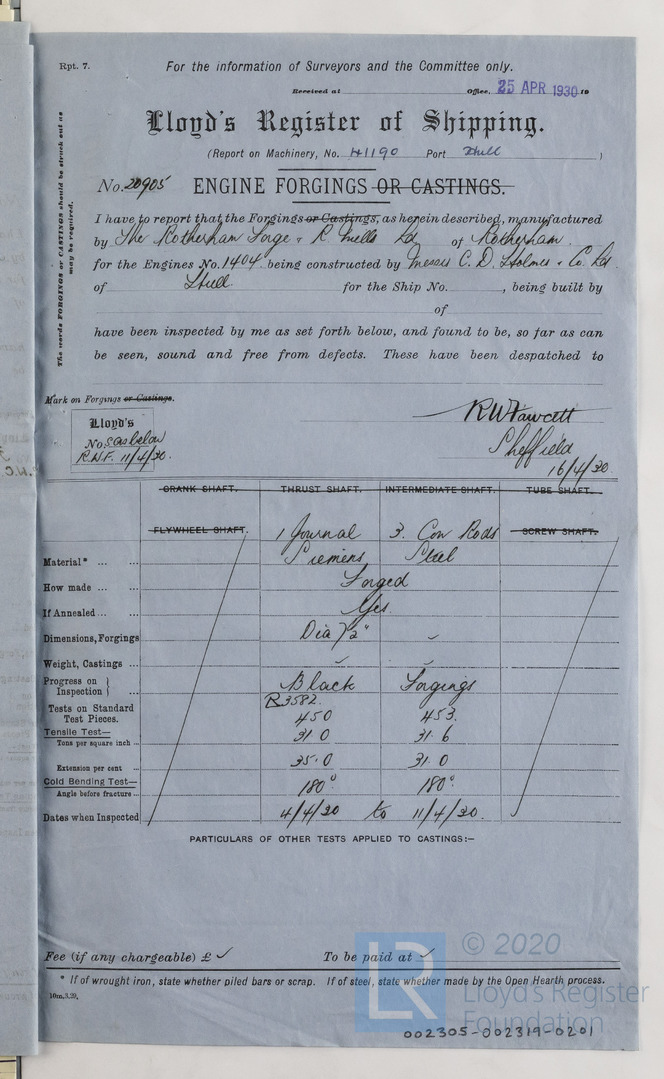 Rpt. 7.
For the information of Surveyors and the Committee only.
Received at Office, 25 APR 1930 19
Lloyd's Register of Shipping.
(Report on Machinery, No. 41190 Port Hull )
No. 20905 ENGINE FORGINGS OR CASTINGS.
The words FORGINGS or CASTINGS should be struck out as
may be required.
I have to report that the Forgings or Castings, as herein described, manufactured
by The Rotherham Forge & R. Mills Ld of Rotherham
for the Engines No. 1404 being constructed by Messrs C. D. Holmes & Co. Ld
of Hull. for the Ship No. , being built by
of
have been inspected by me as set forth below, and found to be, so far as can
be seen, sound and free from defects. These have been despatched to
Mark on Forgings or Castings.
Lloyd's
No. as below
R.W.F. 11/4/30.
RWFawcett
Sheffield
16/4/30
CRANK SHAFT. THRUST SHAFT. INTERMEDIATE SHAFT. TUBE SHAFT.
FLYWHEEL SHAFT. 1 Journal 3. Con Rods SCREW SHAFT.
Material* ... ... Siemens Steel
How made ... ... Forged
If Annealed ... ... Yes.
Dimensions, Forgings Dia 7½"
Weight, Castings ...
Progress on } Black Forgings
Inspection } ...
Tests on Standard R3582.
Test Pieces. 450 453.
Tensile Test— 31.0 31.6
Tons per square inch ...
Extension per cent ... 35.0 31.0
Cold Bending Test— 180° 180°
Angle before fracture ...
Dates when Inspected 4/4/30 to 11/4/30.
PARTICULARS OF OTHER TESTS APPLIED TO CASTINGS:—
Fee (if any chargeable) £ To be paid at
* If of wrought iron, state whether piled bars or scrap. If of steel, state whether made by the Open Hearth process.
10m,3,29.
LR
© 2020
Lloyd's Register
Foundation
002305-002319-0201